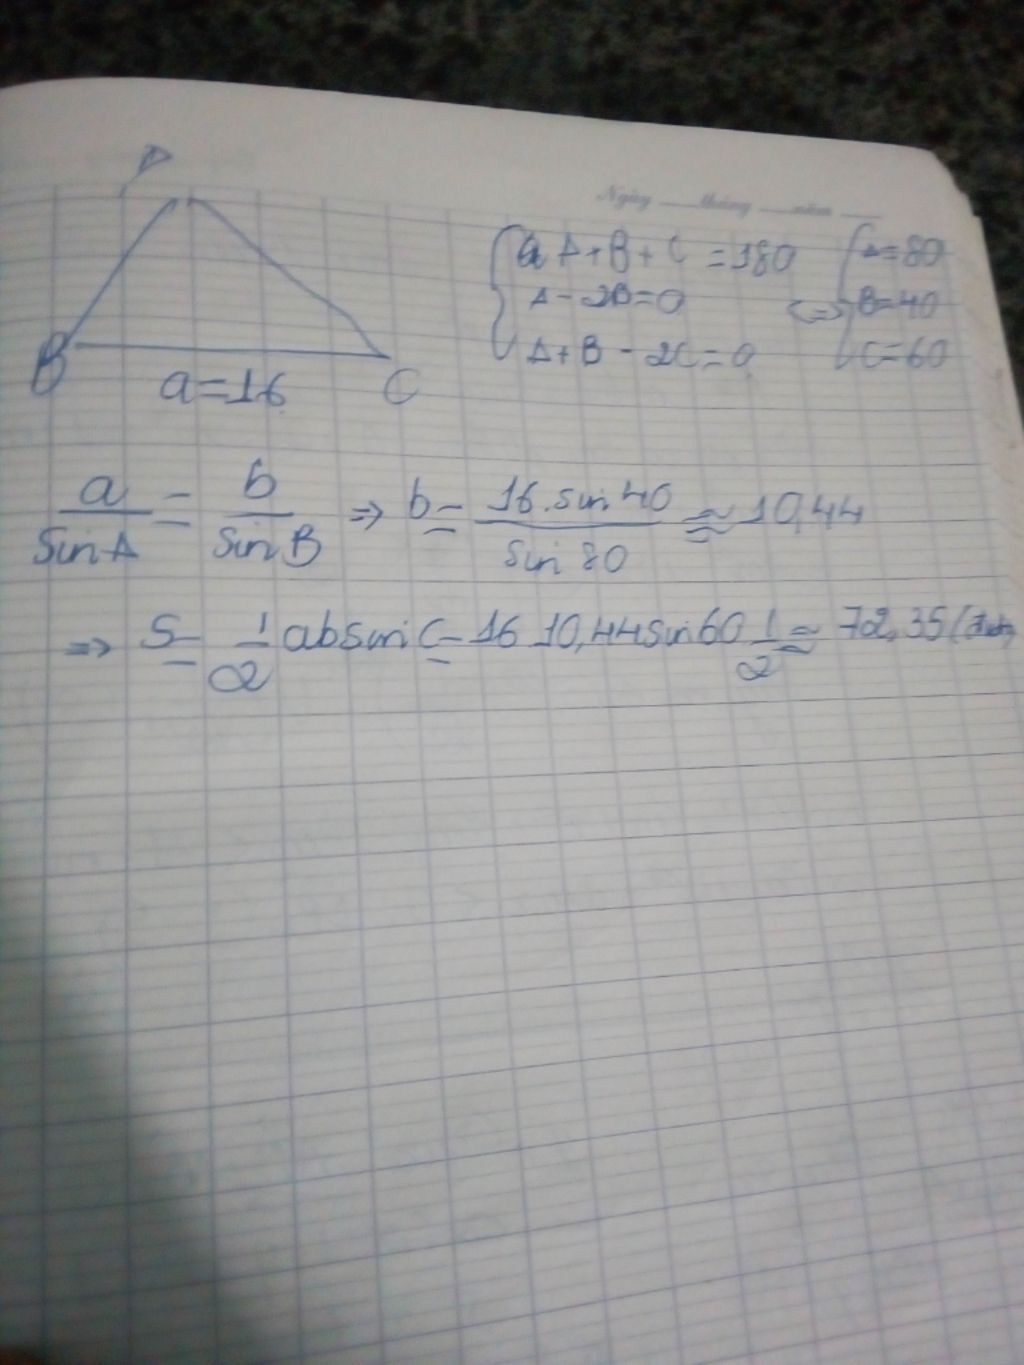 A
Ngày tháng năm
B
a=16
C
{ a A+B+C =180
A-2B=0
A+B-2C=0
<=> { A=80
B=40
C=60
a/sinA = b/sinB => b= 16.sin40/sin80 ≈ 10,44
=> S= 1/2 absinC= 16 10,44sin60 1/2 ≈ 72,35